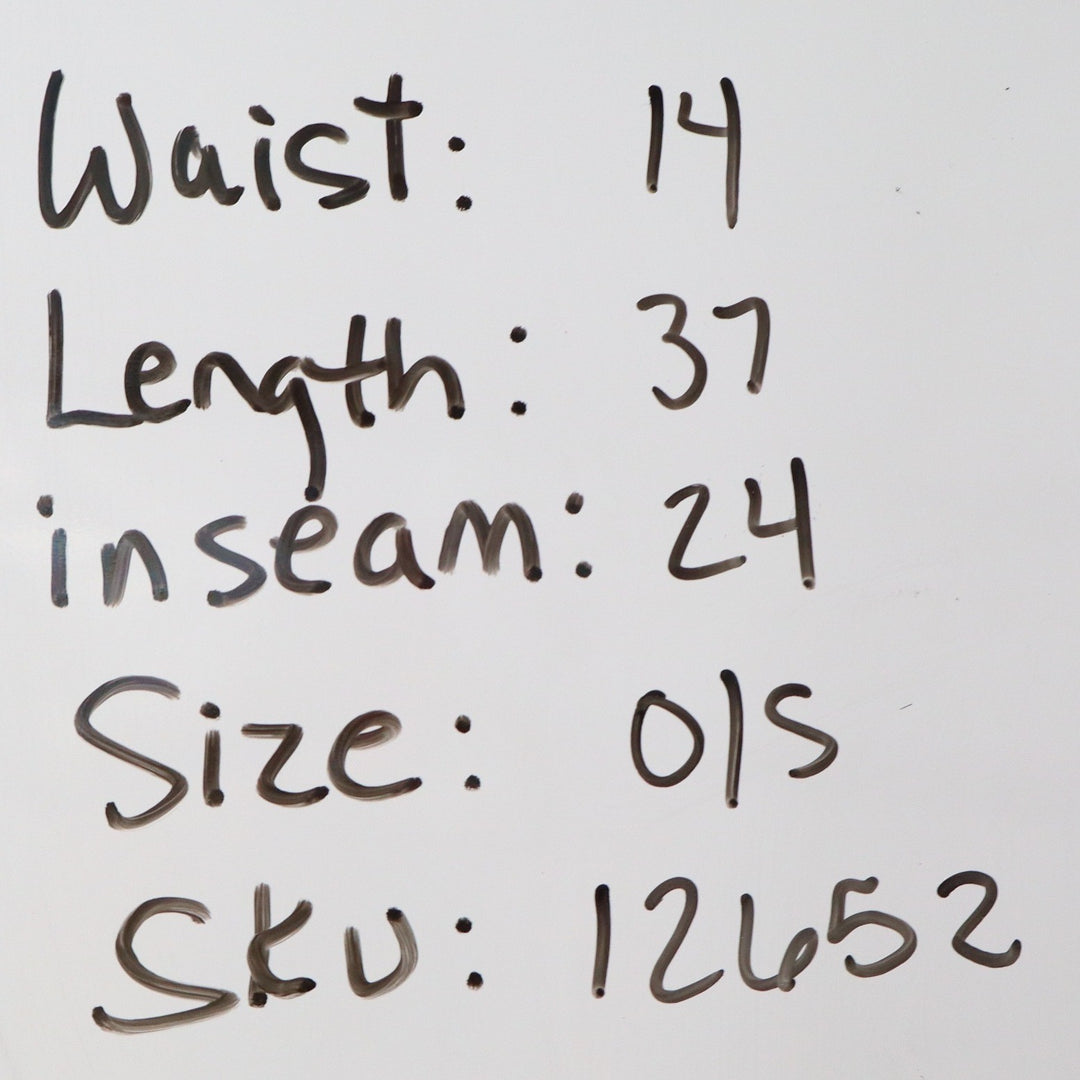 Waist: 14
Length: 37
inseam: 24
Size: O/S
SKU: 12652